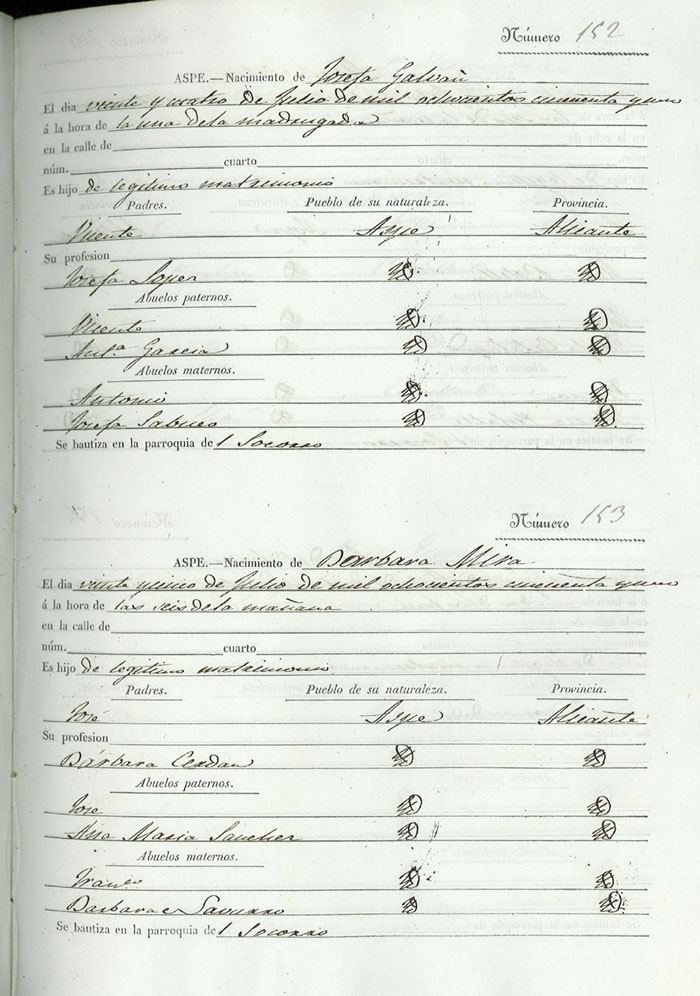 Número 152
ASPE.—Nacimiento de Josefa Galvañ
El dia veinte y cuatro de Julio de mil ochocientos cincuenta y uno
á la hora de la una de la madrugada
en la calle de
núm. cuarto
Es hijo de legitimo matrimonio
Padres. Pueblo de su naturaleza. Provincia.
Vicente Aspe Alicante
Su profesion
Josefa Soper
Abuelos paternos.
Vicente
Ant.ª Garcia
Abuelos maternos.
Antonio
Josefa Sabuco
Se bautiza en la parroquia del Socorro
Número 153
ASPE.—Nacimiento de Barbara Mira
El dia veinte y cinco de Julio de mil ochocientos cincuenta y uno
á la hora de las seis de la mañana
en la calle de
núm. cuarto
Es hijo de legitimo matrimonio
Padres. Pueblo de su naturaleza. Provincia.
José Aspe Alicante
Su profesion
Bárbara Cerdan
Abuelos paternos.
Jose
Ana Maria Sanchez
Abuelos maternos.
Fran.co
Barbara
Se bautiza en la parroquia del Socorro